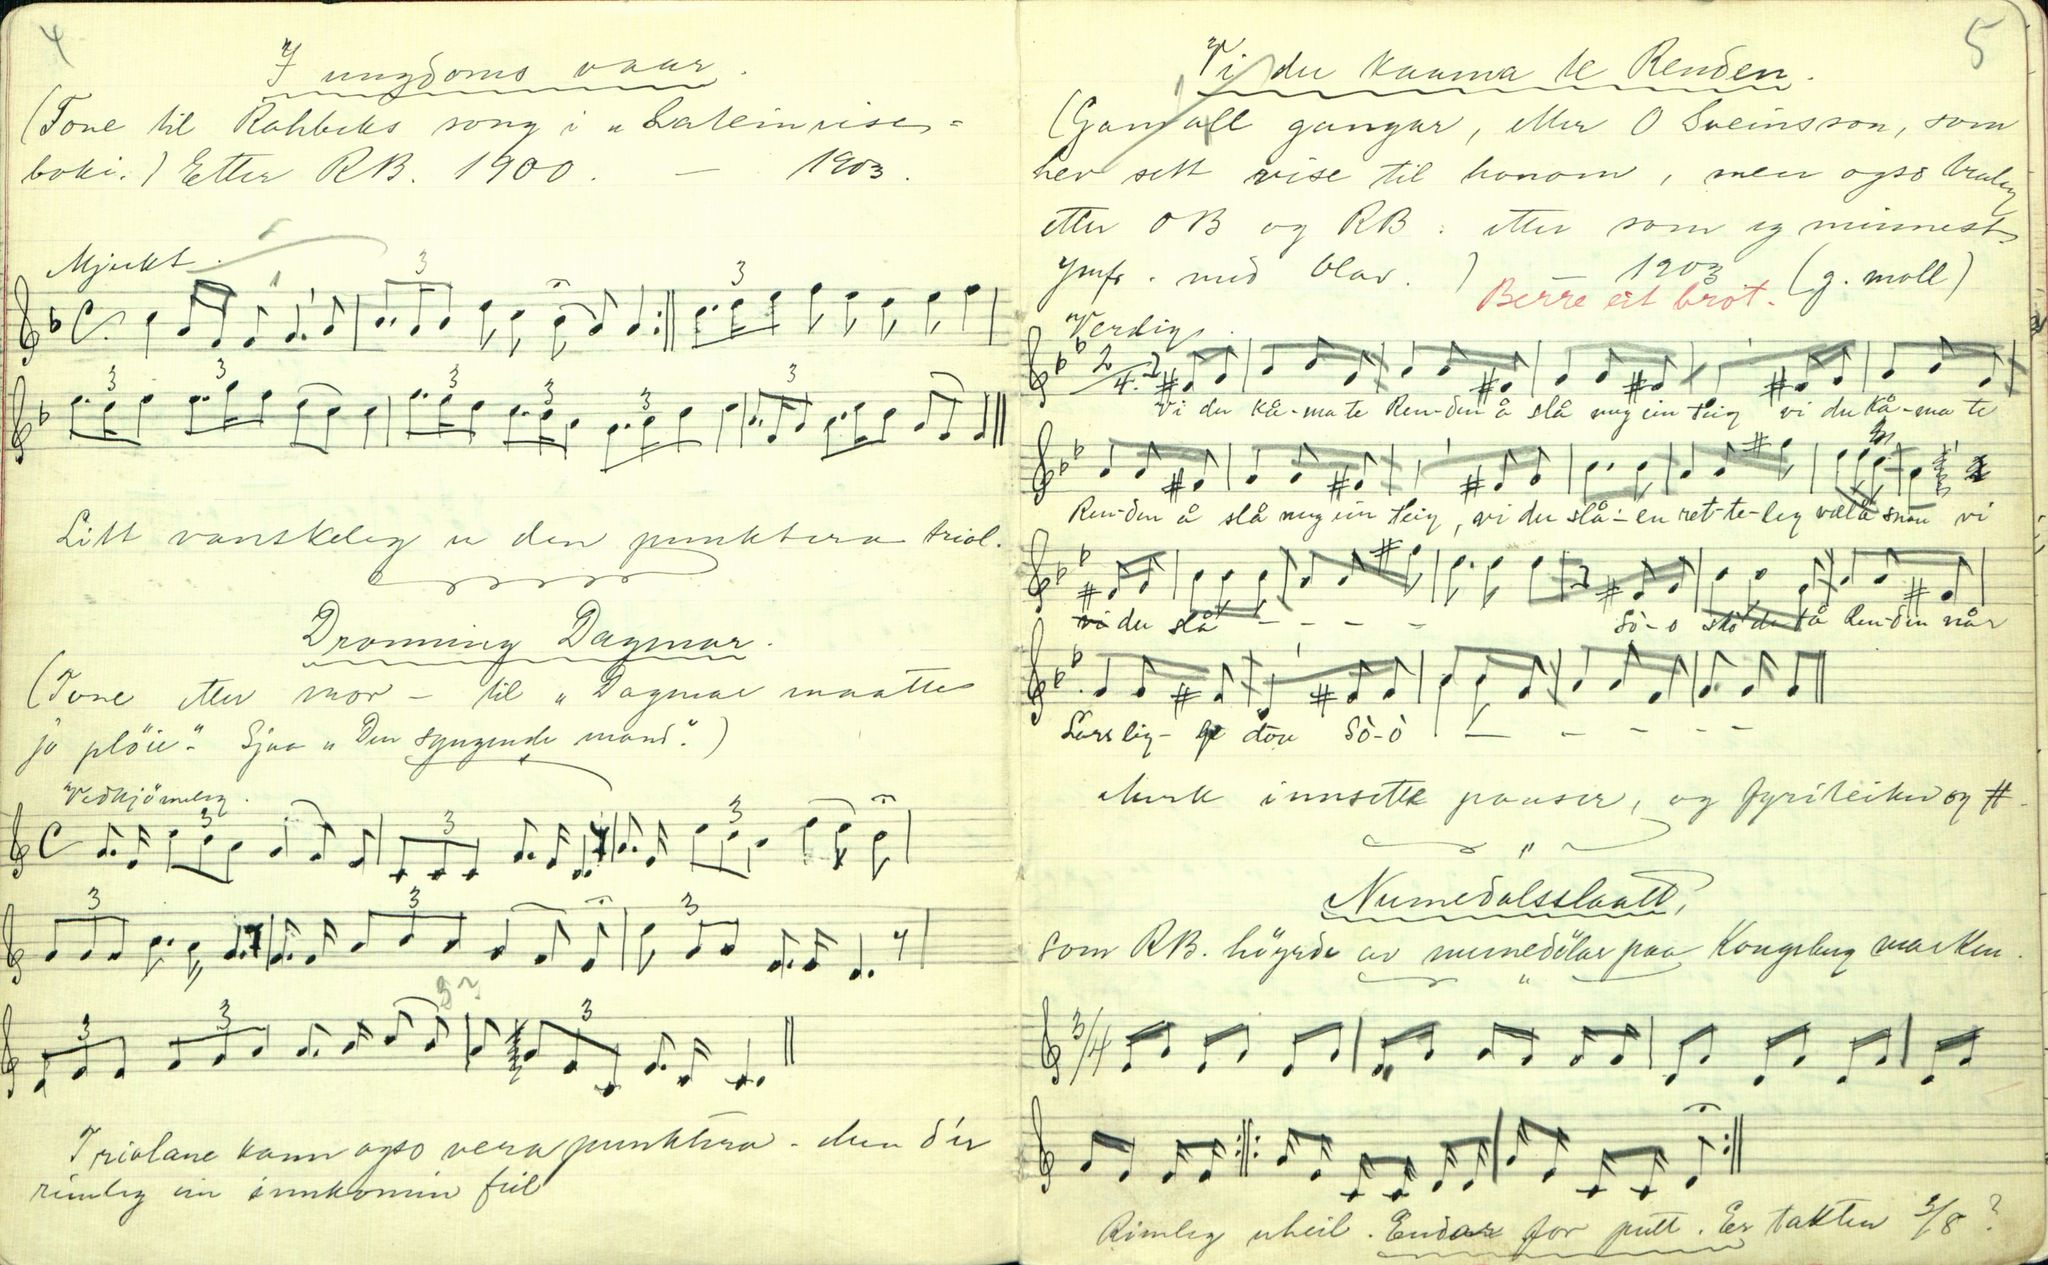 4
I ungdoms vaar.
(Tone til Rahbeks song i "Lateinvise=
boki.) Etter RB. 1900. — 1903.
Mjukt.
3 3
3 3 3 3 3 3
Litt vanskeleg u den punktera triol.
Dronning Dagmar.
(Tone etter mor — til "Dagmar maatte
jo plöie". Sjaa "Den syngende mand".)
Vedkjömeleg.
3 3 3
3 3 3
3 3 3
Triolane kann ogso vera punktera - men d'er
rimleg ein innkomin feil
5
Vi du kaama te Renden.
(Gamall gangar, etter O Sveinsson, som
hev sett vise til honom, men ogso
etter OB og RB: etter som eg minnest
Jmfr. med Olav.) — 1903 (g. moll)
Berre eit brot.
Verdig.
2/4
Vi du kå-ma te Ren-den å slå meg ein teig vi du kå-ma te
Ren-den å slå meg ein teig, vi du slå-en ret-te-leg væl å snau vi
vi du slå - - - - Só-o då Ren-den når
Lars lig- ge dau Sò-ò — - - - -
Merk innsette pausir, og fyriteikn og #.
Numedalsslaatt,
som RB. höyrde av numedölar paa Kongsberg marken.
3/4
Rimleg uheil. Endar for putt. Er takten 3/8?